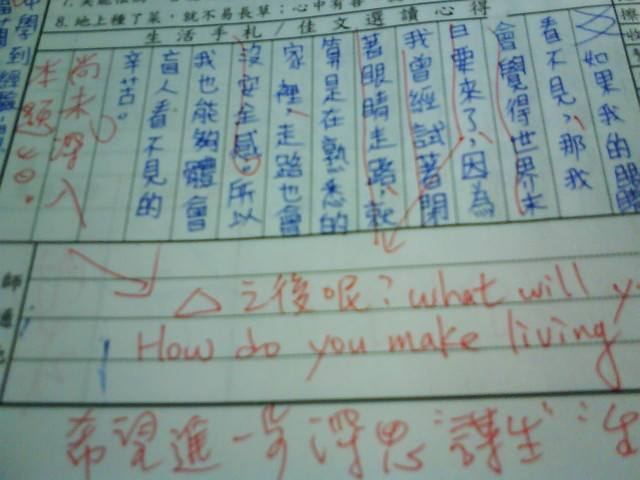 8. 地上種了菜，就不易長草；心中有善
生活手札 / 佳文選讀心得
如果我的眼
看不見，那我
會覺得世界末
日要來了，因為
我曾經試著閉
著眼睛走路，就
算是在熟悉的
家裡，走路也會
沒安全感。所以
我也能夠體會
盲人看不見的
辛苦。
尚未深入
本題
△之後呢？what will y
How do you make living
希望進一步深思“謀生”“生